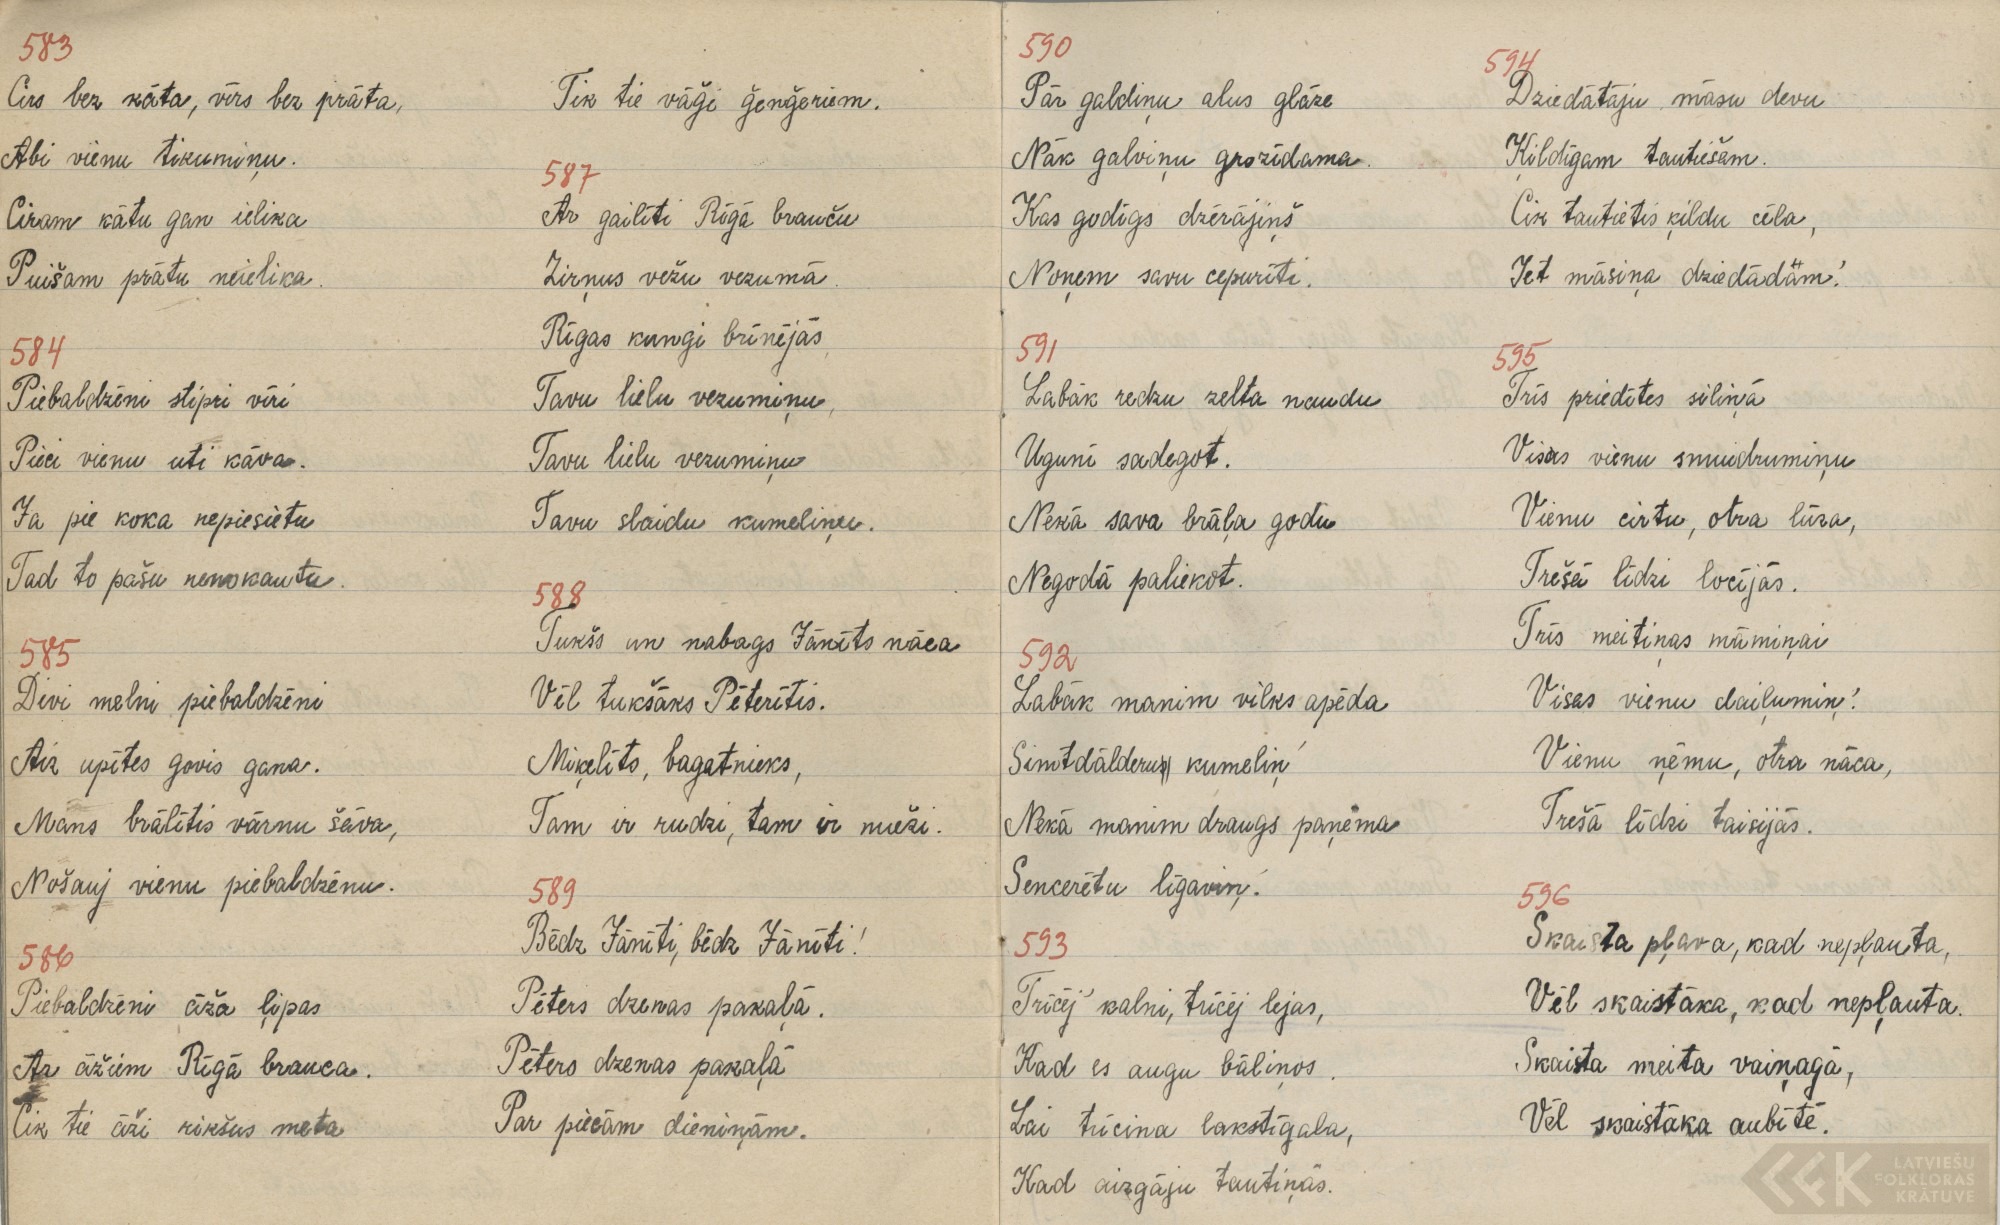 583
Cirs bez kāta, vīrs bez prāta,
Abi vienu tikumiņu.
Ciram kātu gan ielika
Puišam prātu neielika.
584
Piebaldzēni stipri vīri
Pieci vienu uti kāva.
Ja pie koka nepiesietu
Tad to pašu nenokautu.
585
Divi melni piebaldzēni
Aiz upītes govis gana.
Mans brālītis vārnu šāva,
Nošauj vienu piebaldzēnu.
586
Piebaldzēni āža ļipas
Ar āžiem Rīgā brauca.
Cik tie āži rikšus meta
Tik tie vāģi ģenģeriem.
587
Ar gailīti Rīgā braucu
Zirņus vežu vezumā.
Rīgas kungi brīnējās,
Tavu lielu vezumiņu,
Tavu lielu vezumiņu
Tavu slaidu kumeliņu.
588
Tukšs un nabags Jānīts nāca
Vēl tukšāks Pēterītis.
Miķelīts, bagatnieks,
Tam ir rudzi, tam ir mieži.
589
Bēdz Jānīti, bēdz Jānīti!
Pēters dzenas pakaļā.
Pēters dzenas pakaļā
Par piecām dieniņām.
590
Pār galdiņu alus glāze
Nāk galviņu grozīdama.
Kas godīgs dzērājiņš
Noņem savu cepurīti.
591
Labāk redzu zelta naudu
Ugunī sadegot.
Nekā sava brāļa godu
Negodā paliekot.
592
Labāk manim vilks apēda
Simtdālderu kumeliņ'
Nekā manim draugs paņēma
Sencerētu līgaviņ'.
593
Trīcēj' kalni, trīcēj lejas,
Kad es augu bāliņos.
Lai trīcina lakstīgala,
Kad aizgāju tautiņās.
594
Dziedātāju māsu devu
Ķildīgam tautiešam.
Cik tautietis ķildu cēla,
Iet māsiņa dziedādām!
595
Trīs priedītes siliņā
Visas vienu smuidrumiņu
Vienu cirtu, otra lūza,
Trešā līdzi locījās.
Trīs meitiņas māmiņai
Visas vienu daiļumiņ'.
Vienu ņēmu, otra nāca,
Trešā līdzi taisijās.
596
Skaista pļava, kad nepļauta,
Vēl skaistāka, kad nepļauta.
Skaista meita vaiņagā,
Vēl skaistāka aubītē.
LATVIEŠU
FOLKLORAS
KRĀTUVE